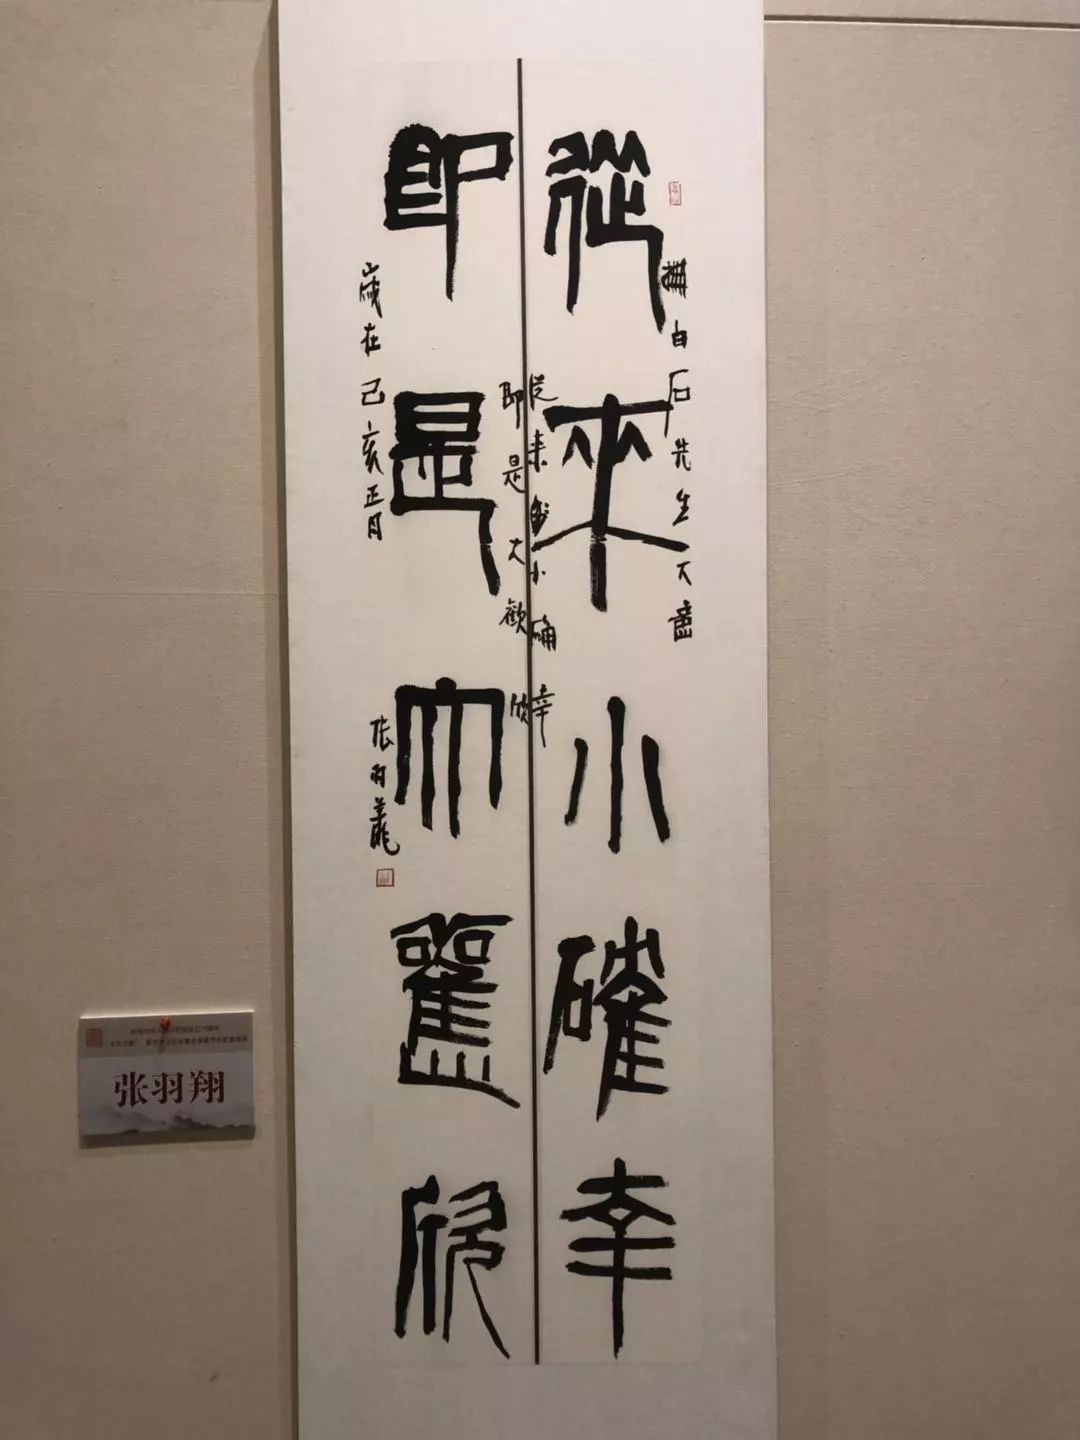 從來小確幸
即是大懽欣
白石先生大意
從来小确幸
即是大歡欣
歲在己亥正月
张羽翔
张羽翔